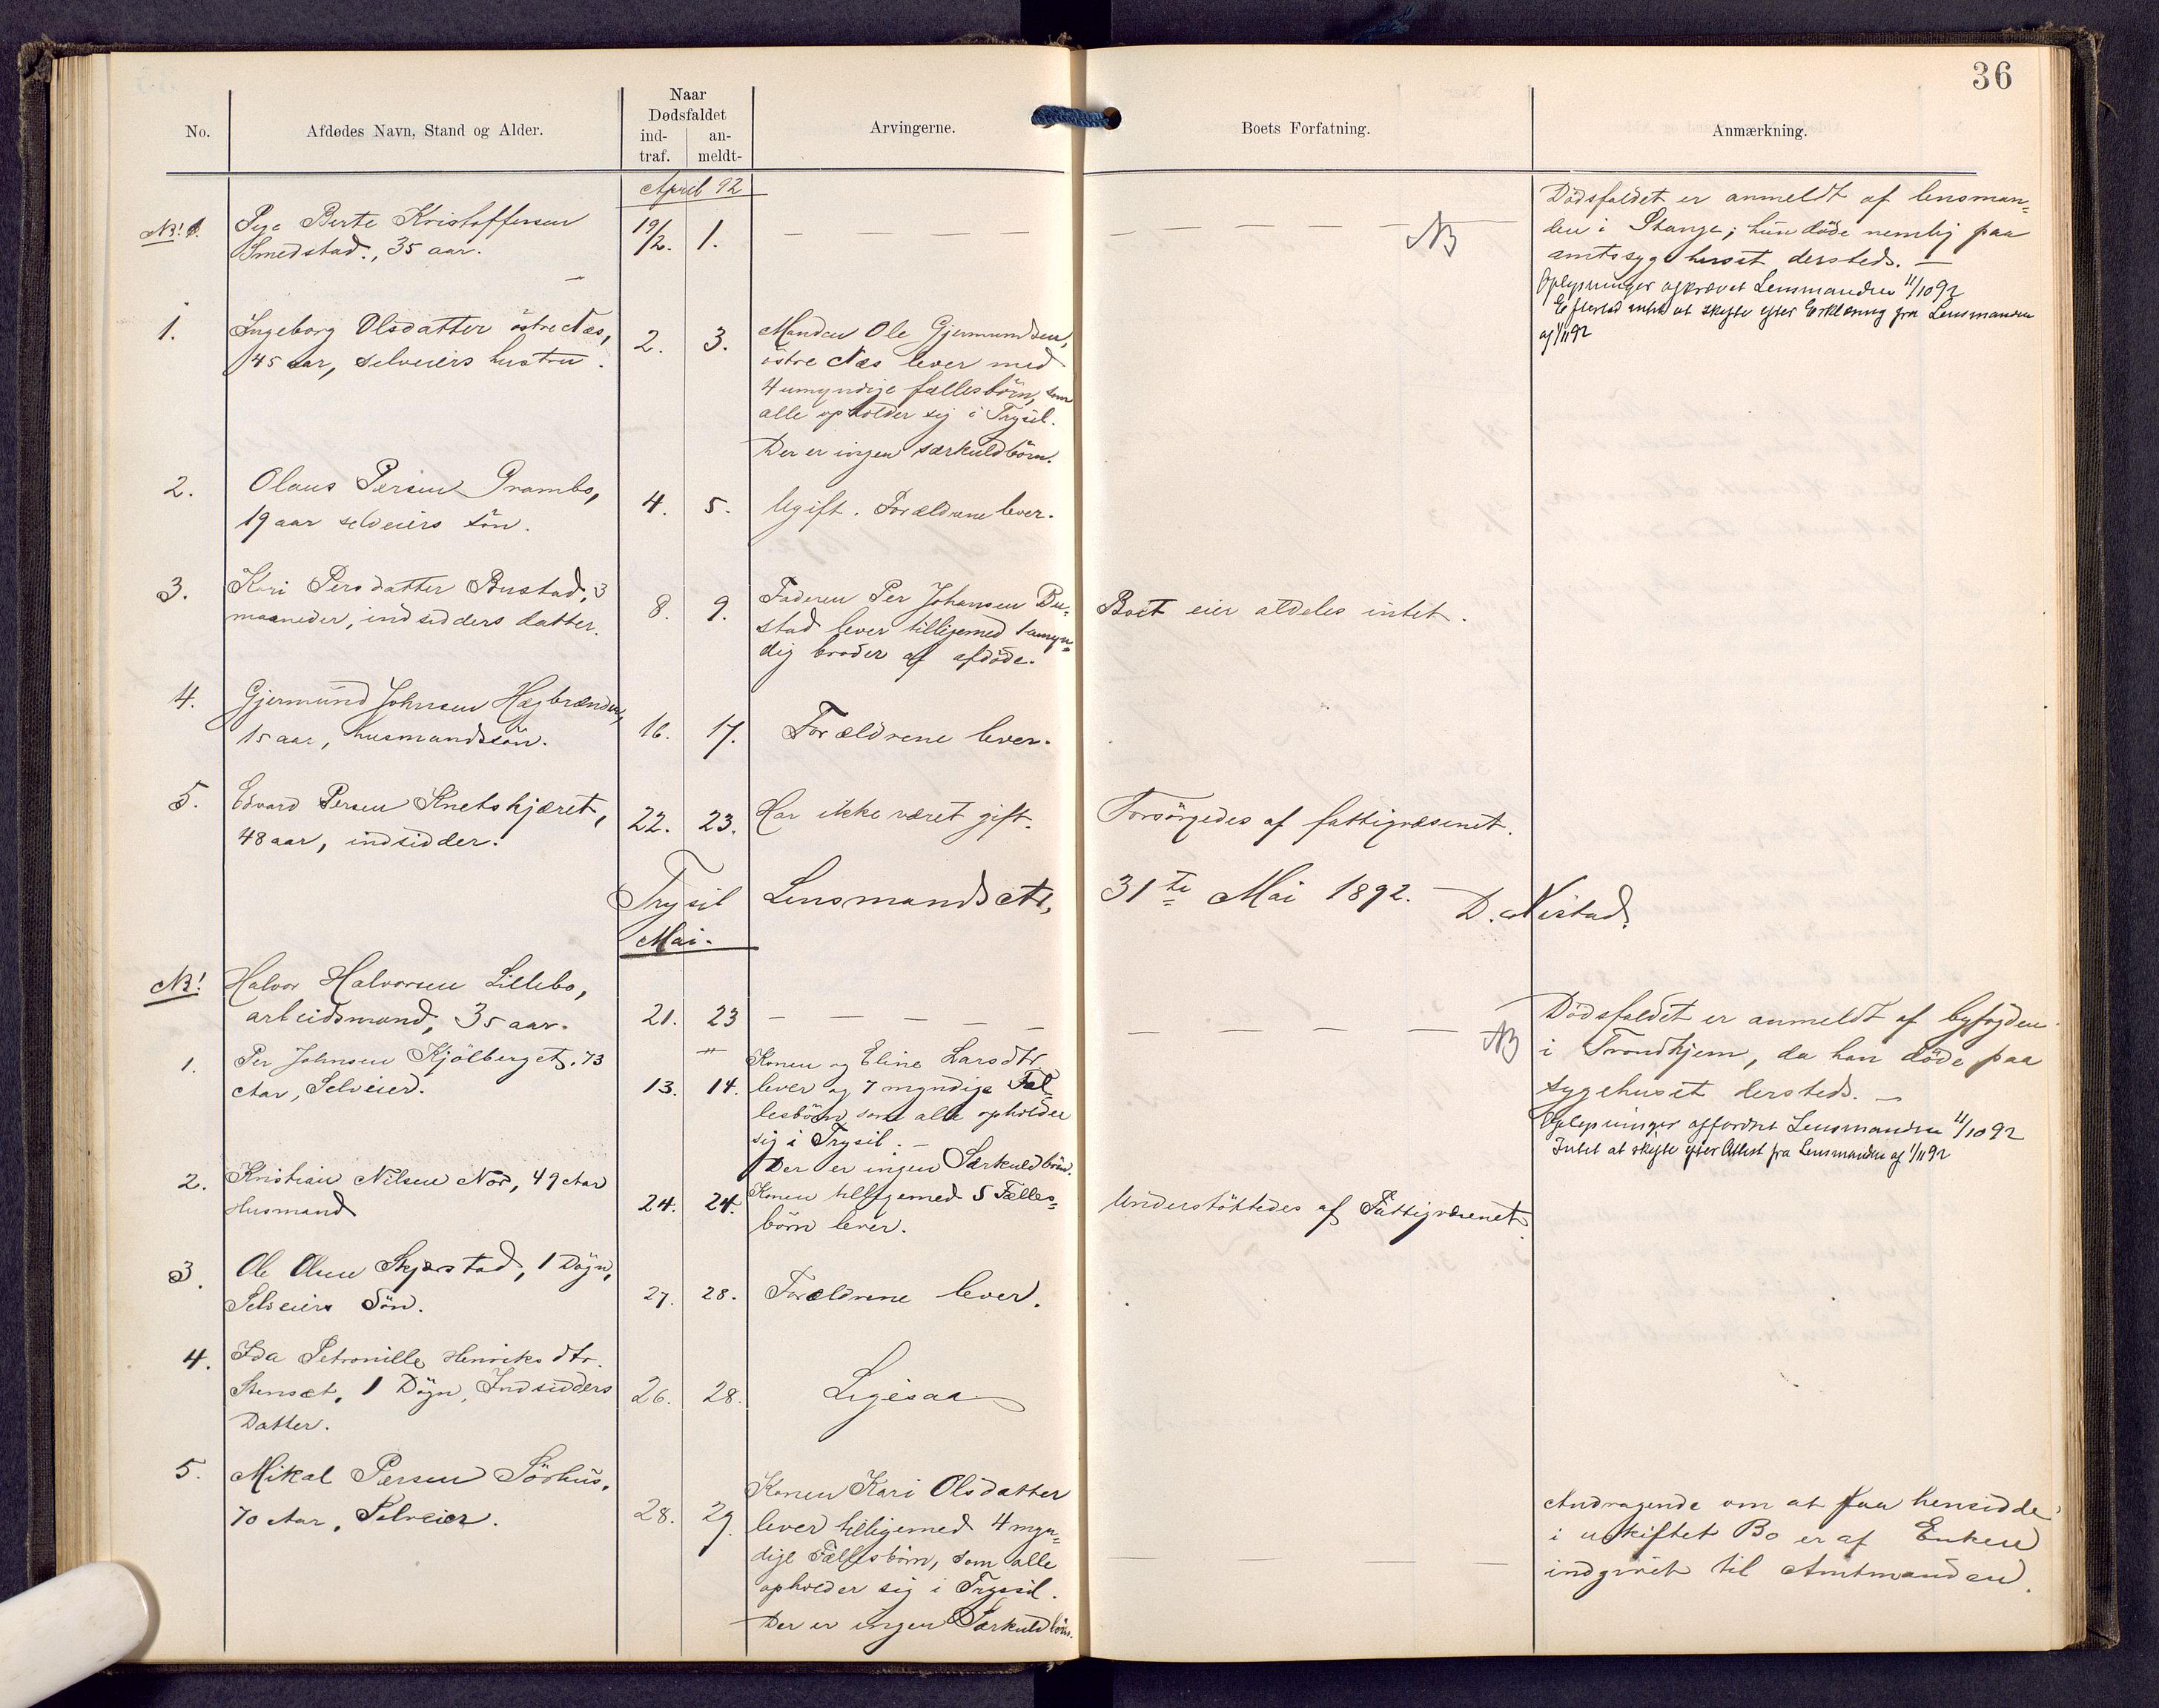 36
No.
Afdødes Navn, Stand og Alder.
Naar
Dødsfaldet
ind-
traf.
an-
meldt-
Arvingerne.
Boets Forfatning.
Anmærkning.
April 92
NB! 1.
Pige Berte Kristoffersen
Smedstad., 35 aar.
19/2.
1.
NB
Dödsfaldet er anmeldt af lensman-
den i Stange; hun döde nemlig paa
amtssygehuset dersteds. —
Oplysninger afkrævet Lensmanden 11/10 92
Efterlod intet at skifte efter Erklæring fra Lensmanden
af 1/11 92
1.
Ingeborg Olsdatter östre Næs,
45 aar, selveiers hustru.
2.
3.
Manden Ole Gjermundsen,
östre Næs lever med
4 umyndige fællesbörn, som
alle opholder sig i Trysil.
Der er ingen særkuldbörn.
2.
Olaus Persen Grambo,
19 aar selveiers sön.
4.
5.
Ugift. Forældrene lever.
3.
Kari Persdatter Bustad, 3
maaneder, indsidders datter.
8.
9.
Faderen Per Johansen Bu-
stad lever tilligemed 1 umyn-
dig broder af afdöde.
Boet eier aldeles intet.
4.
Gjermund Johnsen Hægbrænden,
15 aar, husmandssön.
16.
17.
Forældrene lever.
5.
Edvard Persen Knetskjæret,
48 aar, indsidder.
22.
23.
Har ikke været gift.
Forsörgedes af fattigvæsenet.
Trysil Lensmandsct, 31te Mai 1892. D. Nistad.
Mai.
NB!
Halvor Halvorsen Lillebo,
arbeidsmand, 35 aar.
21.
23
NB
Dödsfaldet er anmeldt af byfogden
i Trondhjem, da han döde paa
sygehuset dersteds. —
Oplysninger affordret Lensmanden 11/10 92
Intet at skifte efter Attest fra Lensmanden af 1/11 92
1.
Per Johnsen Kjölberget, 73
Aar, Selveier.
13.
14.
Konen og Eline Larsdtr.
lever og 7 myndige Fæl-
lesbörn som alle opholder
sig i Trysil. —
Der er ingen Særkuldbörn.
2.
Kristian Nilsen Nor, 49 Aar
Husmand
24.
24.
Konen tilligemed 5 Fælles-
börn lever.
Understöttedes af Fattigvæsenet.
3.
Ole Olsen Skjærstad, 1 Dögn,
Selveiers Sön.
27.
28.
Forældrene lever.
4.
Ida Petronille Henriksdtr.
Stensæt, 1 Dögn, Indsidders
Datter.
26.
28.
Ligesaa
5.
Mikal Persen Sörhus,
70 Aar, Selveier.
28.
29.
Konen Kari Olsdatter
lever tilligemed 4 myn-
dige Fællesbörn, som alle
opholder sig i Trysil.
Der er ingen Særkuldbörn.
Andragende om at faa hensidde
i uskiftet Bo er af Enken
indgivet til Amtmanden.